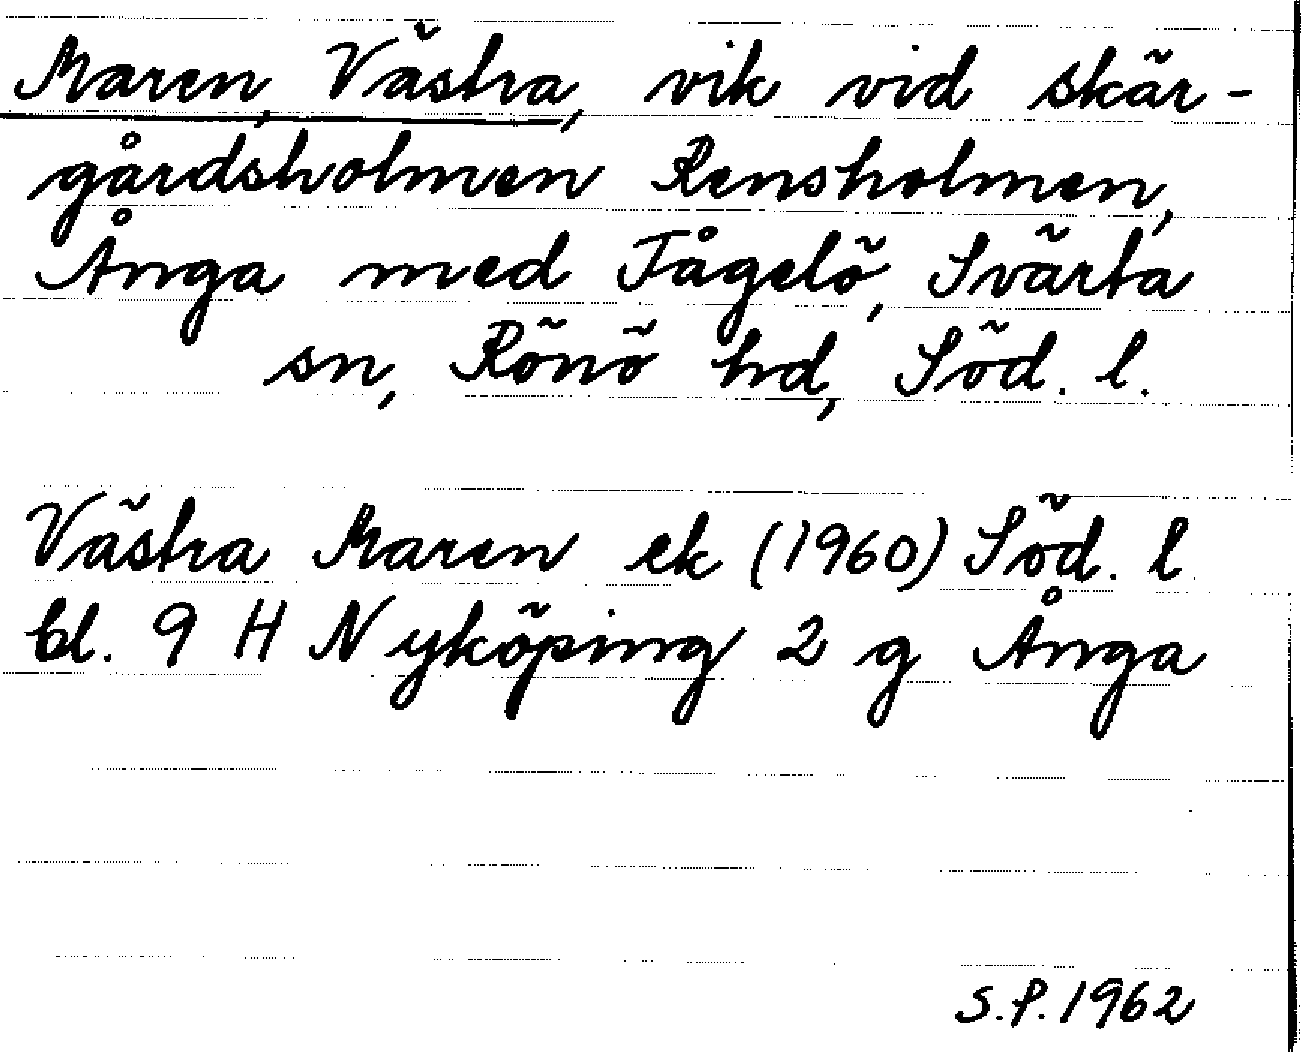 Maren, Västra, vik vid skär-
gårdsholmen Rensholmen,
Ånga med Tågelö, Svärta
sn, Rönö hd, Söd. l.
Västra Maren ek (1960) Söd. l
bl. 9 H Nyköping 2 g Ånga
S.P. 1962